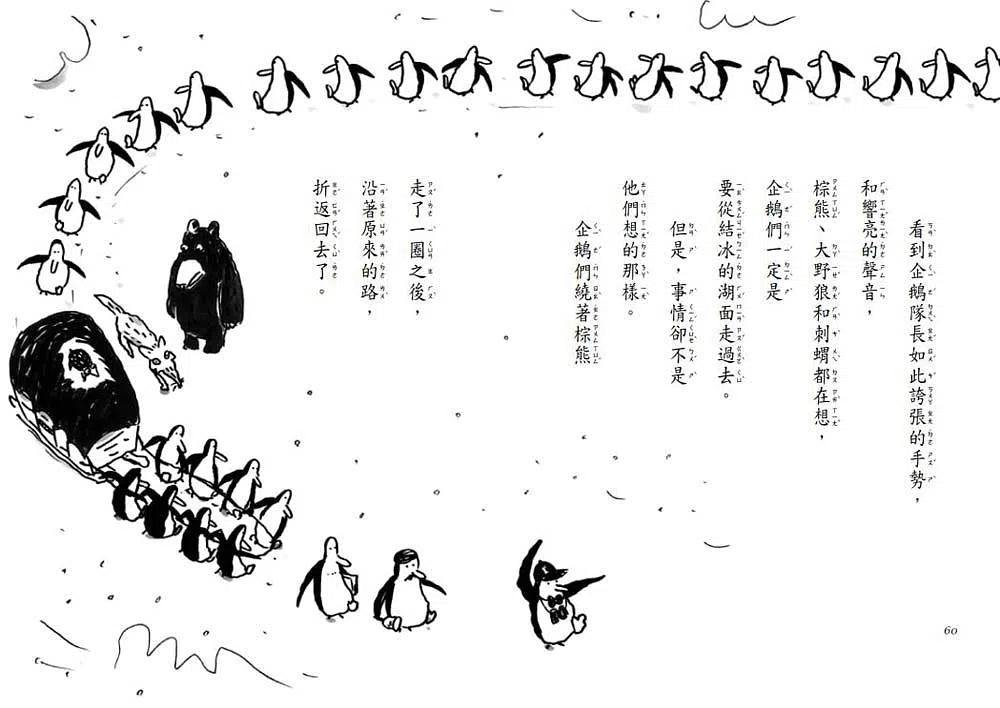 看到企鵝隊長如此誇張的手勢，
和響亮的聲音，
棕熊、大野狼和刺蝟都在想，
企鵝們一定是
要從結冰的湖面走過去。
但是，事情卻不是
他們想的那樣。
企鵝們繞著棕熊
走了一圈之後，
沿著原來的路，
折返回去了。
60